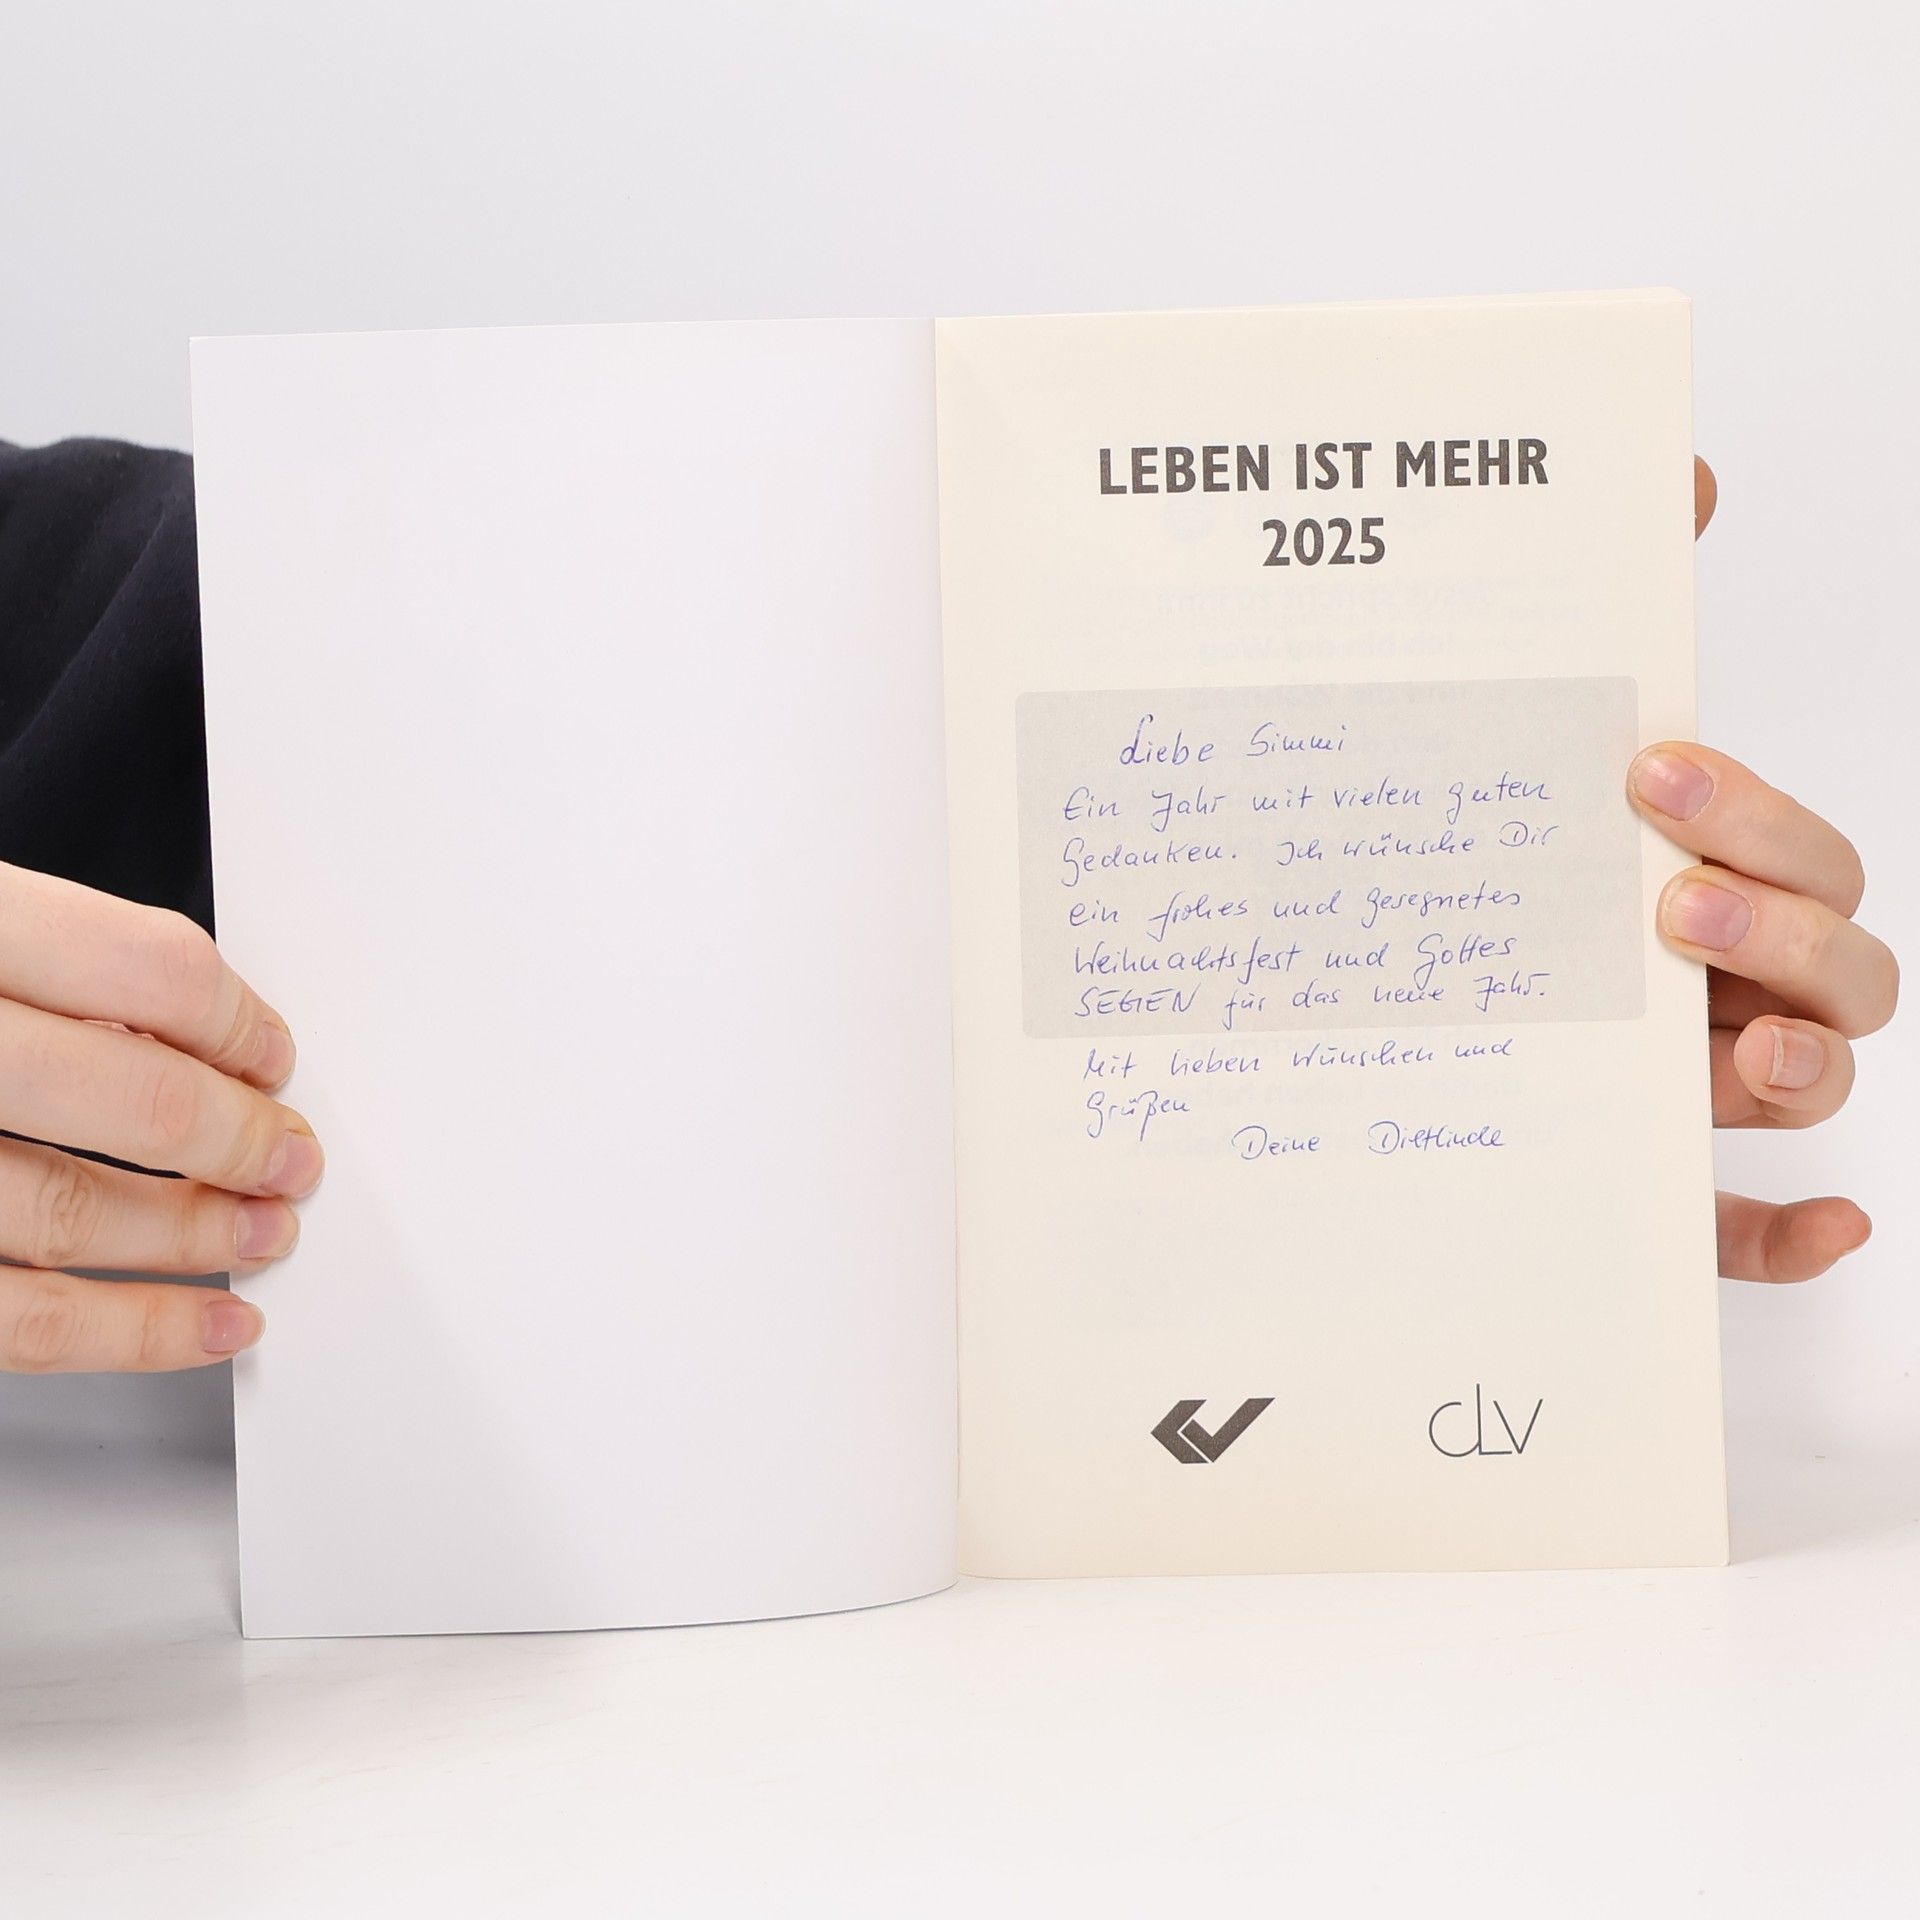 LEBEN IST MEHR
2025
Liebe Simmi
Ein Jahr mit vielen guten
Gedanken. Ich wünsche Dir
ein frohes und gesegnetes
Weihnachtsfest und Gottes
SEGEN für das neue Jahr.
Mit lieben Wünschen und
Grüßen
Deine Dietlinde
CLV